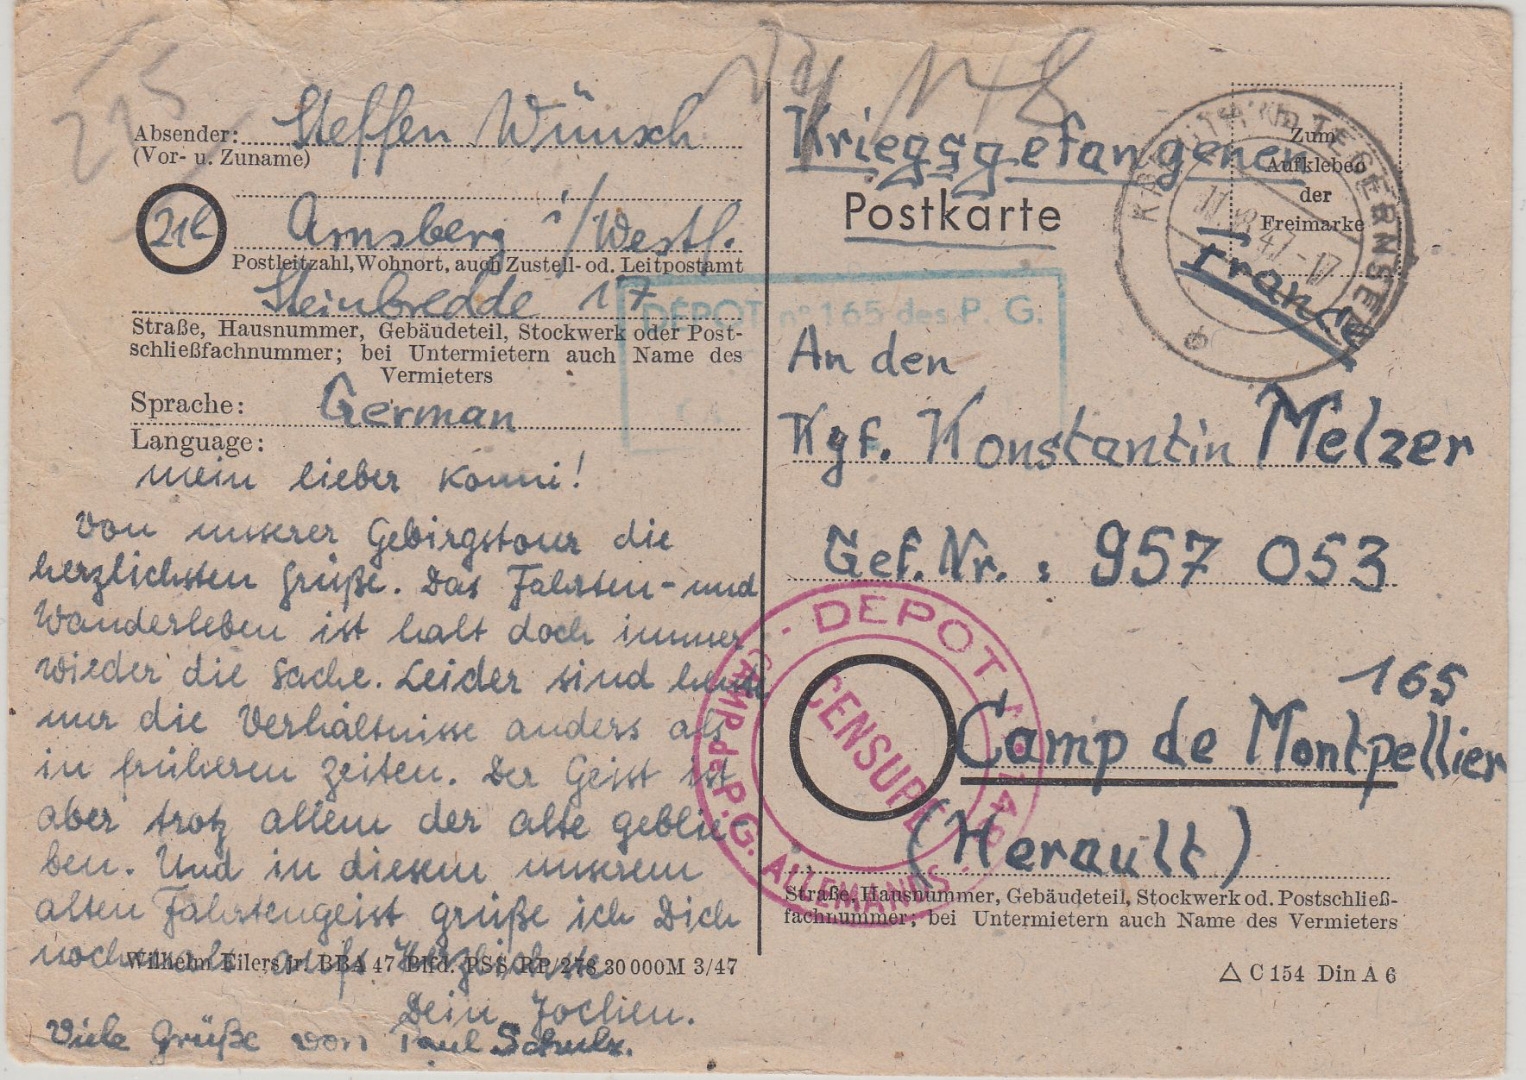 215
Absender: Steffen Wünsch
(Vor- u. Zuname)
21b
Arnsberg i/Westf.
Postleitzahl, Wohnort, auch Zustell- od. Leitpostamt
Steinbredde 17
Straße, Hausnummer, Gebäudeteil, Stockwerk oder Post-
schließfachnummer; bei Untermietern auch Name des
Vermieters
Sprache: German
Language:
mein lieber Konni!
Von unserer Gebirgstour die
herzlichsten Grüße. Das Fahrten- und
Wanderleben ist halt doch immer
wieder die Sache. Leider sind heute
nur die Verhältnisse anders als
in früheren Zeiten. Der Geist ist
aber trotz allem der alte geblie-
ben. Und in diesem unserem
alten Fahrtengeist grüße ich Dich
nochmals aufs Herzlichste
Wilhelm Eilers jr. BBA 47 Blfd. PSS RP 278 30000M 3/47
Dein Jochen.
Viele Grüße von Paul Schulz.
Kriegsgefangenen
Postkarte
Zum
Aufkleben
der
Freimarke
EISERNSEE
47.-17
France
DÉPOT n° 165 des P. G.
An den
Kgf. Konstantin Melzer
Gef. Nr.: 957 053
165
Camp de Montpellier
(Herault)
DEPOT
CAMP de P.G. ALLEMANDS
CENSURE
Straße, Hausnummer, Gebäudeteil, Stockwerk od. Postschließ-
fachnummer; bei Untermietern auch Name des Vermieters
△ C 154 Din A 6